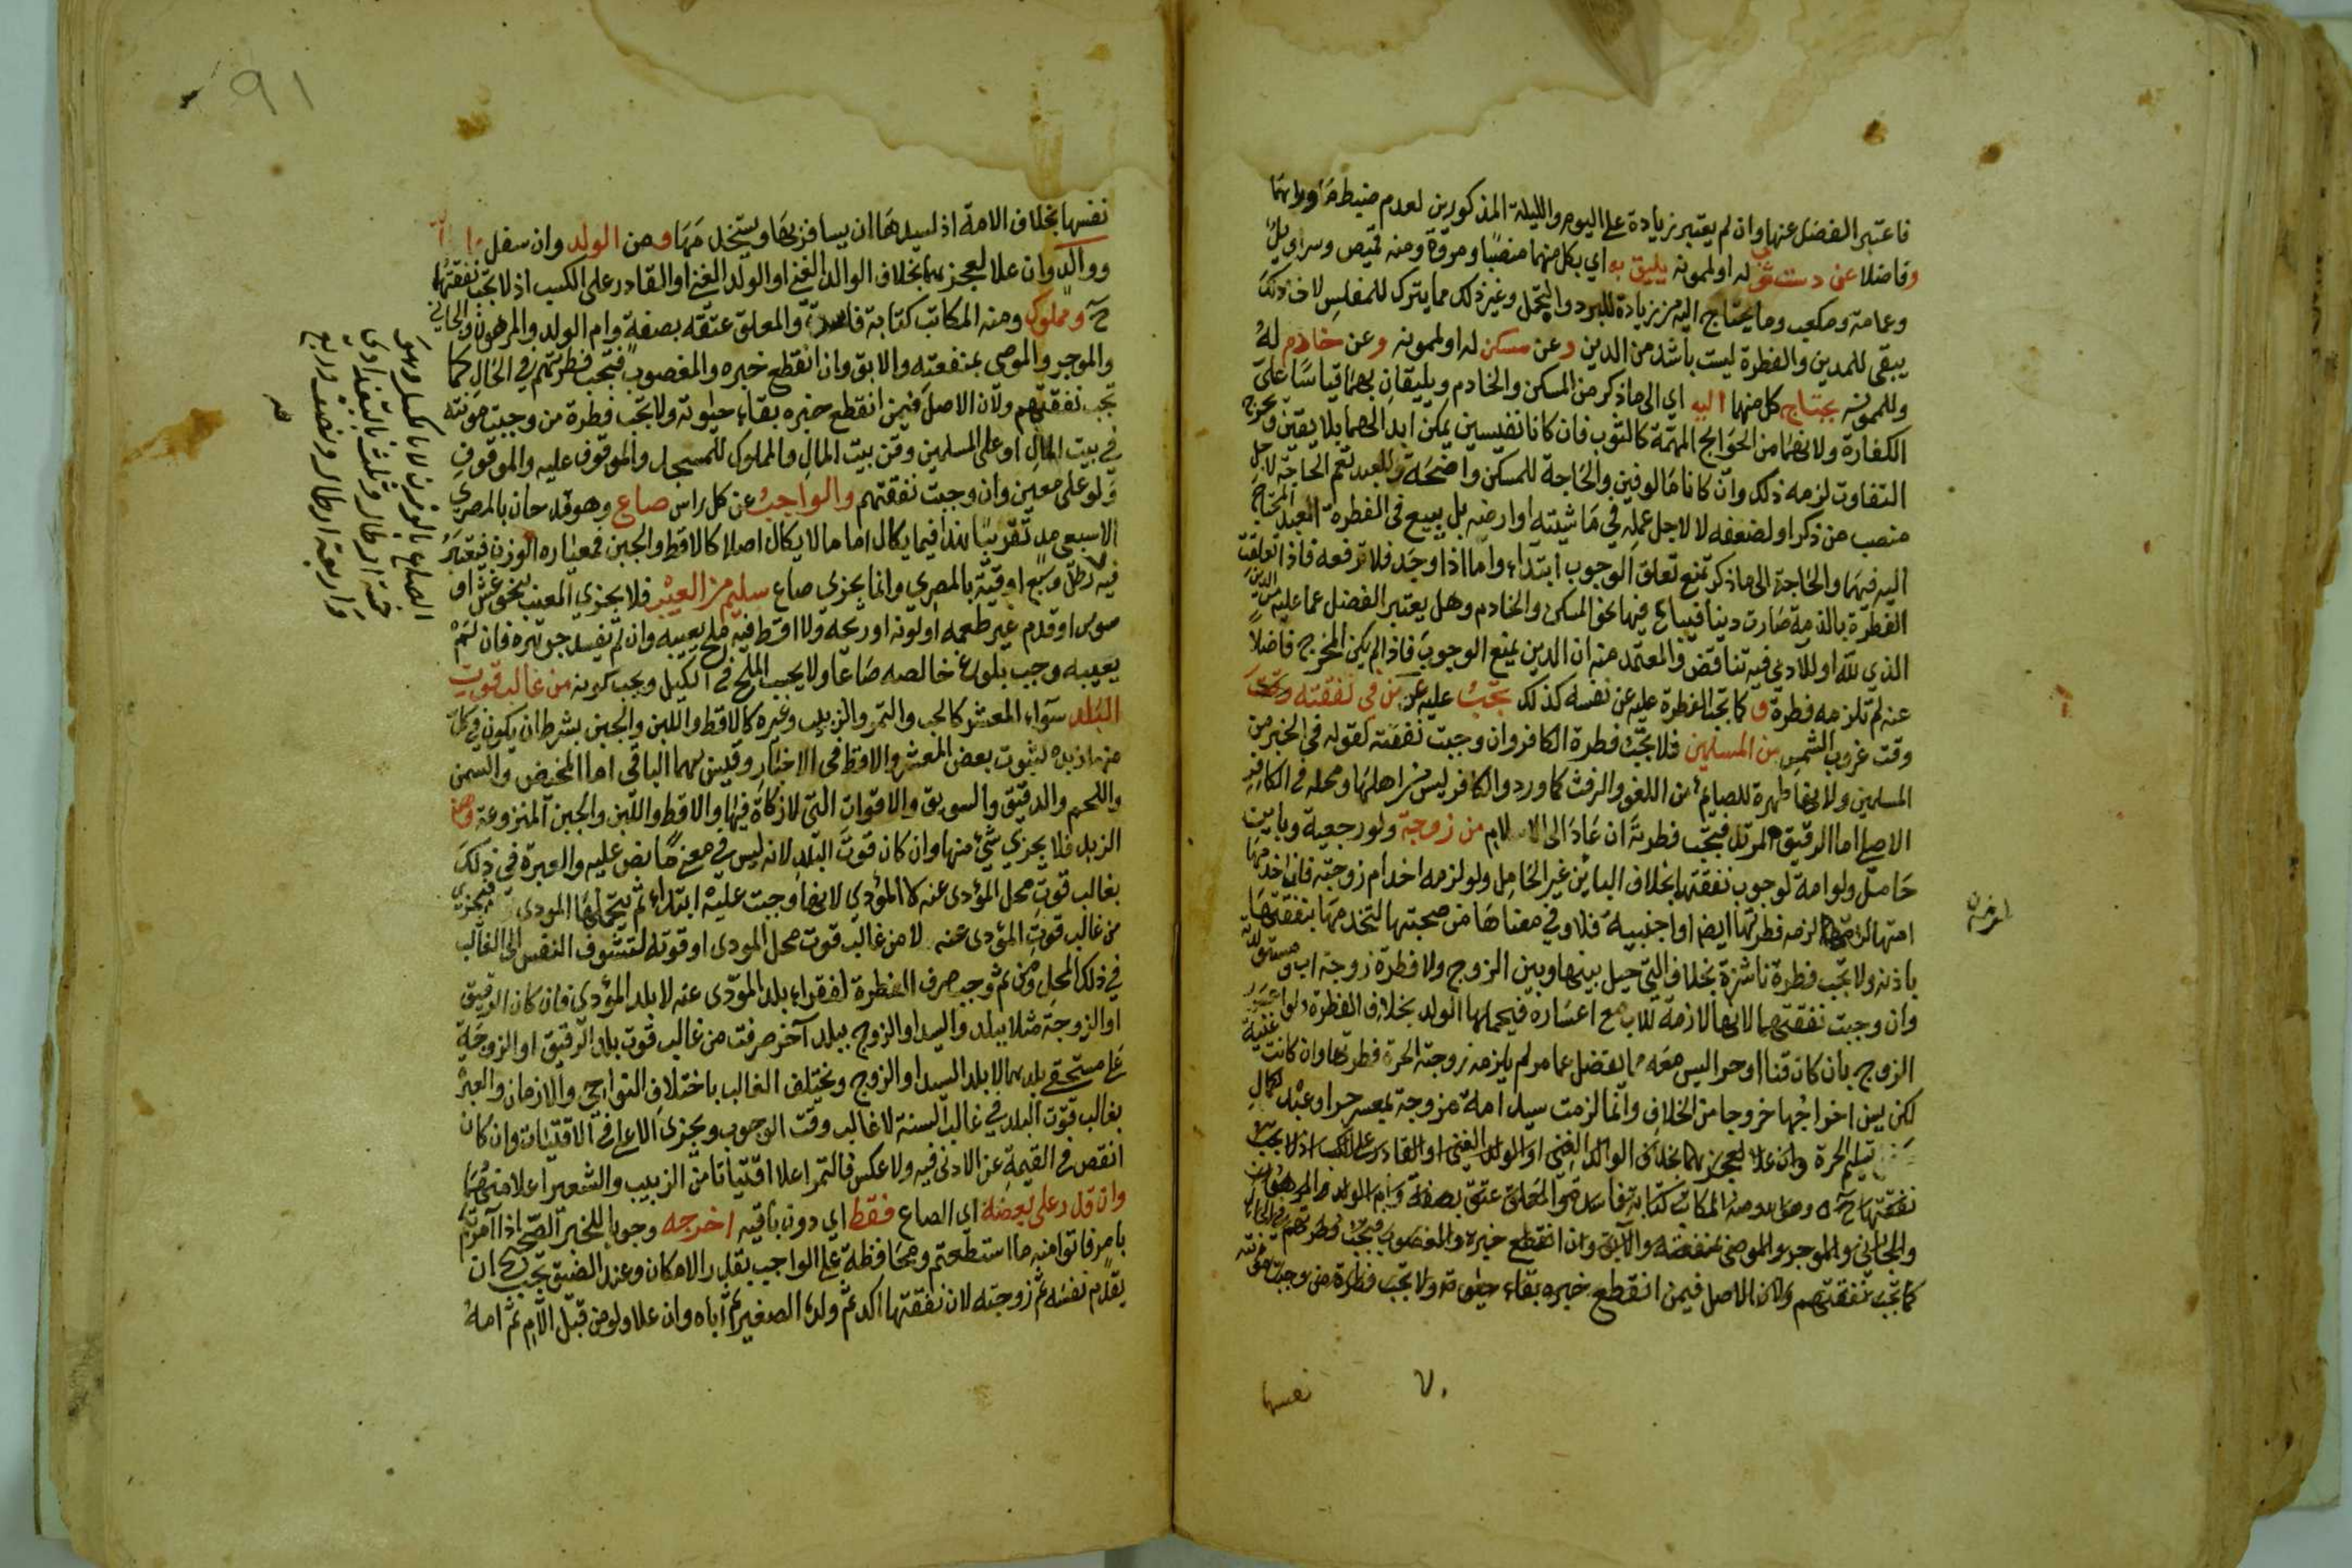 فاعتبر الفضل عنها وان لم يعتبر زيادة على اليوم والليلة المذكورين لعدم ضبط ما وراءهما
وفاضلا عن دست ثوب له او لممونه يليق به اي بكل منهما منصبا ومروة ومنه قميص وسراويل
وعمامة ومكعب وما يحتاج اليه من زيادة للبرد والتجمل وغير ذلك مما يترك للمفلس لان ذلك
يبقى للمدين والفطرة ليست باشد من الدين وعن مسكن له او لممونه وعن خادم له
وللممونه يحتاج كل منهما اليه اي الى ما ذكر من المسكن والخادم ويليقان بهما قياسا على
الكفارة ولانهما من الحوايج المهمة كالثوب فان كانا نفيسين يمكن ابدالهما بلايقين ويخرج
التفاوت لزمه ذلك وان كانا مالوفين والحاجة للمسكن واضحة وللعبد تعم الحاجة لاجل
منصب من ذكر او لضعفه لا لاجل عمله في ماشيته او ارضه بل يبيع في الفطرة العبد المحتاج
اليه فيهما والحاجة الى ما ذكر تمنع تعلق الوجوب ابتداء واما اذا وجد فلا ترفعه فاذا تعلقت
الفطرة بالذمة صارت دينا فيباع فيها نحو المسكن والخادم وهل يعتبر الفضل عما عليه من الدين
الذي لله او للادمي فيه تناقض والمعتمد منه ان الدين يمنع الوجوب فاذا لم يكن المخرج فاضلا
عنه لم تلزمه فطرة و كما تجب الفطرة عليه عن نفسه كذلك تجب عليه عن من في نفقته وقت
وقت غروب الشمس من المسلمين فلا تجب فطرة الكافر وان وجبت نفقته لقوله في الخبر من
المسلمين ولانها طهرة للصايم من اللغو والرفث كما ورد والكافر ليس من اهلها ومحله في الكافر
الاصلي اما الرقيق المرتد فتجب فطرته ان عاد الى الاسلام من زوجة ولو رجعية وباين
حامل ولو امة لوجوب نفقتها بخلاف الباين غير الحامل ولو لزمه اخدام زوجته فان اخدمها
امتها لزمه فطرتها ايضا او اجنبية فلا وفي معناها من صحبتها لتخدمها بنفقتها
باذنه ولا تجب فطرة ناشزة بخلاف التي حيل بينها وبين الزوج ولا فطرة زوجة اب ومستولدته
وان وجبت نفقتهما لانها لازمة للاب مع اعساره فيحملها الولد بخلاف الفطرة ولو اعسر
الزوج بان كان قنا او حرا ليس معه ما يفضل عما مر لم يلزمه زوجته الحرة فطرتها وان كانت غنية
لكن يسن اخراجها خروجا من الخلاف وانما لزمت سيد امة مزوجة بمعسر حر او عبد لكمال
تسليم الحرة وان علا لعجزهما بخلاف الوالد الغني او الولد الغني او القادر على الكسب اذ لا تجب
نفقتها ح و ومنه المكاتب كتابة فاسدة والمعلق عتقه بصفة وام الولد والمرهون
والجاني والموجر والموصى بمنفعته والآبق وان انقطع خبره والمغصوب فتجب فطرتهم في الحال
كما تجب نفقتهم ولان الاصل فيمن انقطع خبره بقاء حيوته ولا تجب فطرة من وجبت مؤنته
٧٠
نفسها
٩١
نفسها بخلاف الامة اذ لسيدها ان يسافر بها ويستخدمها ومن الولد وان سفل
ووالد وان علا لعجزهما بخلاف الوالد الغني او الولد الغني او القادر على الكسب اذ لا تجب نفقتهما
ح ومملوك ومنه المكاتب كتابة فاسدة والمعلق عتقه بصفة وام الولد والمرهون والجاني
والموجر والموصى بمنفعته والابق وان انقطع خبره والمغصوب فتجب فطرتهم في الحال كما
تجب نفقتهم ولان الاصل فيمن انقطع خبره بقاء حيوته ولا تجب فطرة من وجبت مؤنته
في بيت المال او على المسلمين وقن بيت المال والمملوك للمسجد والموقوف عليه والموقوف
ولو على معين وان وجبت نفقتهم والواجب عن كل راس صاع وهو قدحان بالمصري
الا سبعي مد تقريبا هذا فيما يكال اما ما لا يكال اصلا كالاقط والجبن فمعياره الوزن فيعتبر
فيه رطل وسبع اوقية بالمصري وانما يجزي صاع سليم من العيب فلا يجزي المعيب بنحو غش او
سوس او قدم غير طعمه او لونه او ريحه ولا اقط فيه ملح يعيبه وان لم يفسد جوهره فان لم
يعيبه وجب بلوغ خالصه صاعا ولا يحسب الملح في الكيل ويجب كونه من غالب قوت
البلد سواء المعشر كالحب والتمر والزبيب وغيره كالاقط واللبن والجبن بشرط ان يكون في كل
منها زبده لثبوت بعض المعشر والاقط في الاخبار وقيس بهما الباقي اما المخيض والسمن
واللحم والدقيق والسويق والاقوات التي لا زكاة فيها والاقط واللبن والجبن المنزوعة
الزبد فلا يجزي شيء منها وان كان قوت البلد لانه ليس في معنى ما نص عليه والعبرة في ذلك
بغالب قوت محل المؤدى عنه لا المؤدي لانها وجبت عليه ابتداء ثم يتحملها المودي فتجزي
من غالب قوت المؤدى عنه لا من غالب قوت محل المودي او قوته لتشوف النفس الى الغالب
في ذلك المحل ومن ثم وجب صرف الفطرة لفقراء بلد المؤدى عنه لا بلد المؤدي فان كان الرقيق
او الزوجة مثلا ببلد والسيد او الزوج ببلد آخر صرفت من غالب قوت بلد الرقيق او الزوجة
على مستحقي بلدهما لا بلد السيد او الزوج ويختلف الغالب باختلاف النواحي والازمان والعبرة
بغالب قوت البلد في غالب السنة لا غالب وقت الوجوب ويجزي الاعلى في الاقتيات وان كان
انقص في القيمة عن الادنى فيه ولا عكس فالتمر اعلا اقتياتا من الزبيب والشعير اعلا منهما
وان قدر على بعضه اي الصاع فقط اي دون باقيه اخرجه وجوبا للخبر الصحيح اذا امرتكم
بامر فاتوا منه ما استطعتم ومحافظة على الواجب بقدر الامكان وعند الضيق يجب ان
يقدم نفسه ثم زوجته لان نفقتها اكد ثم ولده الصغير ثم اباه وان علا ولو من قبل الام ثم امه
خمسة ارطال وثلث بالبغدادي
واربعة ارطال ونصف وربع